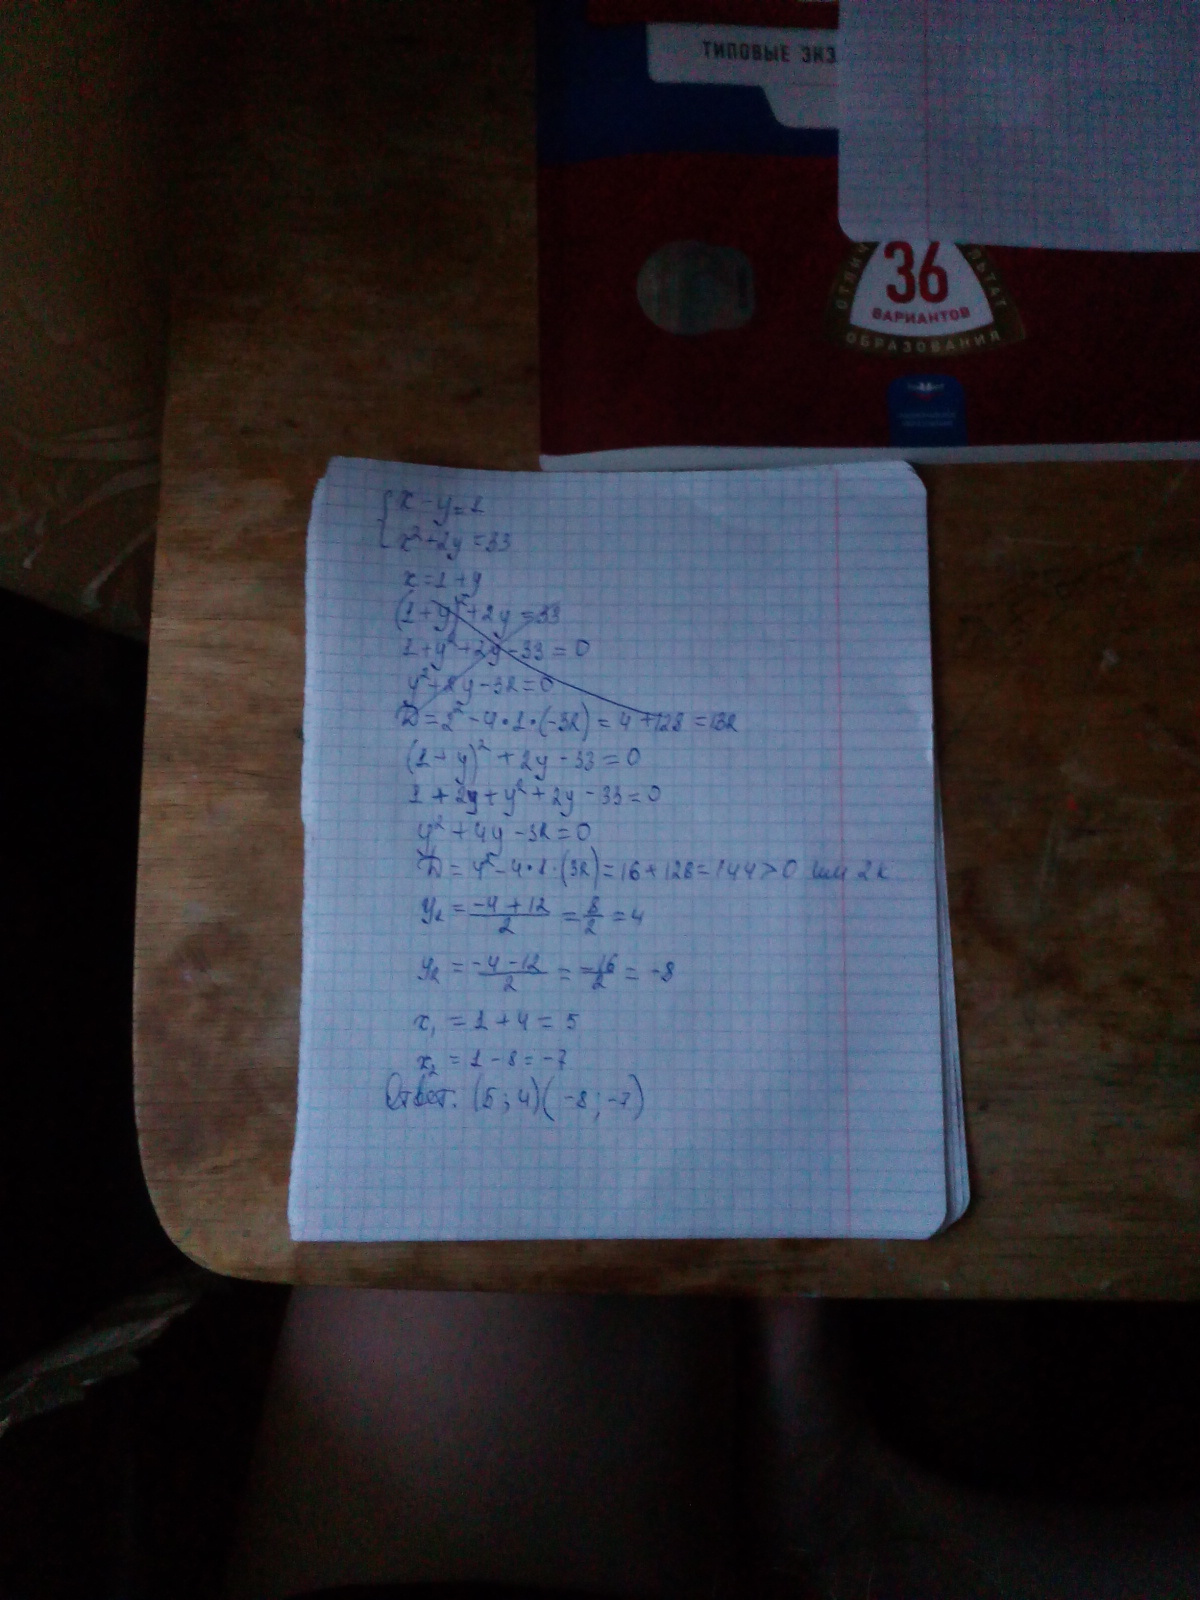 ТИПОВЫЕ ЭКЗ
36
ВАРИАНТОВ
ОБРАЗОВАНИЯ
x - y = 1
x² + 2y = 33
x = 1 + y
(1 + y)² + 2y = 33
1 + y² + 2y - 33 = 0
y² + 2y - 32 = 0
D = 2² - 4·1·(-32) = 4 + 128 = 132
(1 + y)² + 2y - 33 = 0
1 + 2y + y² + 2y - 33 = 0
y² + 4y - 32 = 0
D = 4² - 4·1·(32) = 16 + 128 = 144 > 0 2к
y₁ = (-4 + 12)/2 = 8/2 = 4
y₂ = (-4 - 12)/2 = -16/2 = -8
x₁ = 1 + 4 = 5
x₂ = 1 - 8 = -7
Ответ: (5; 4) (-8; -7)